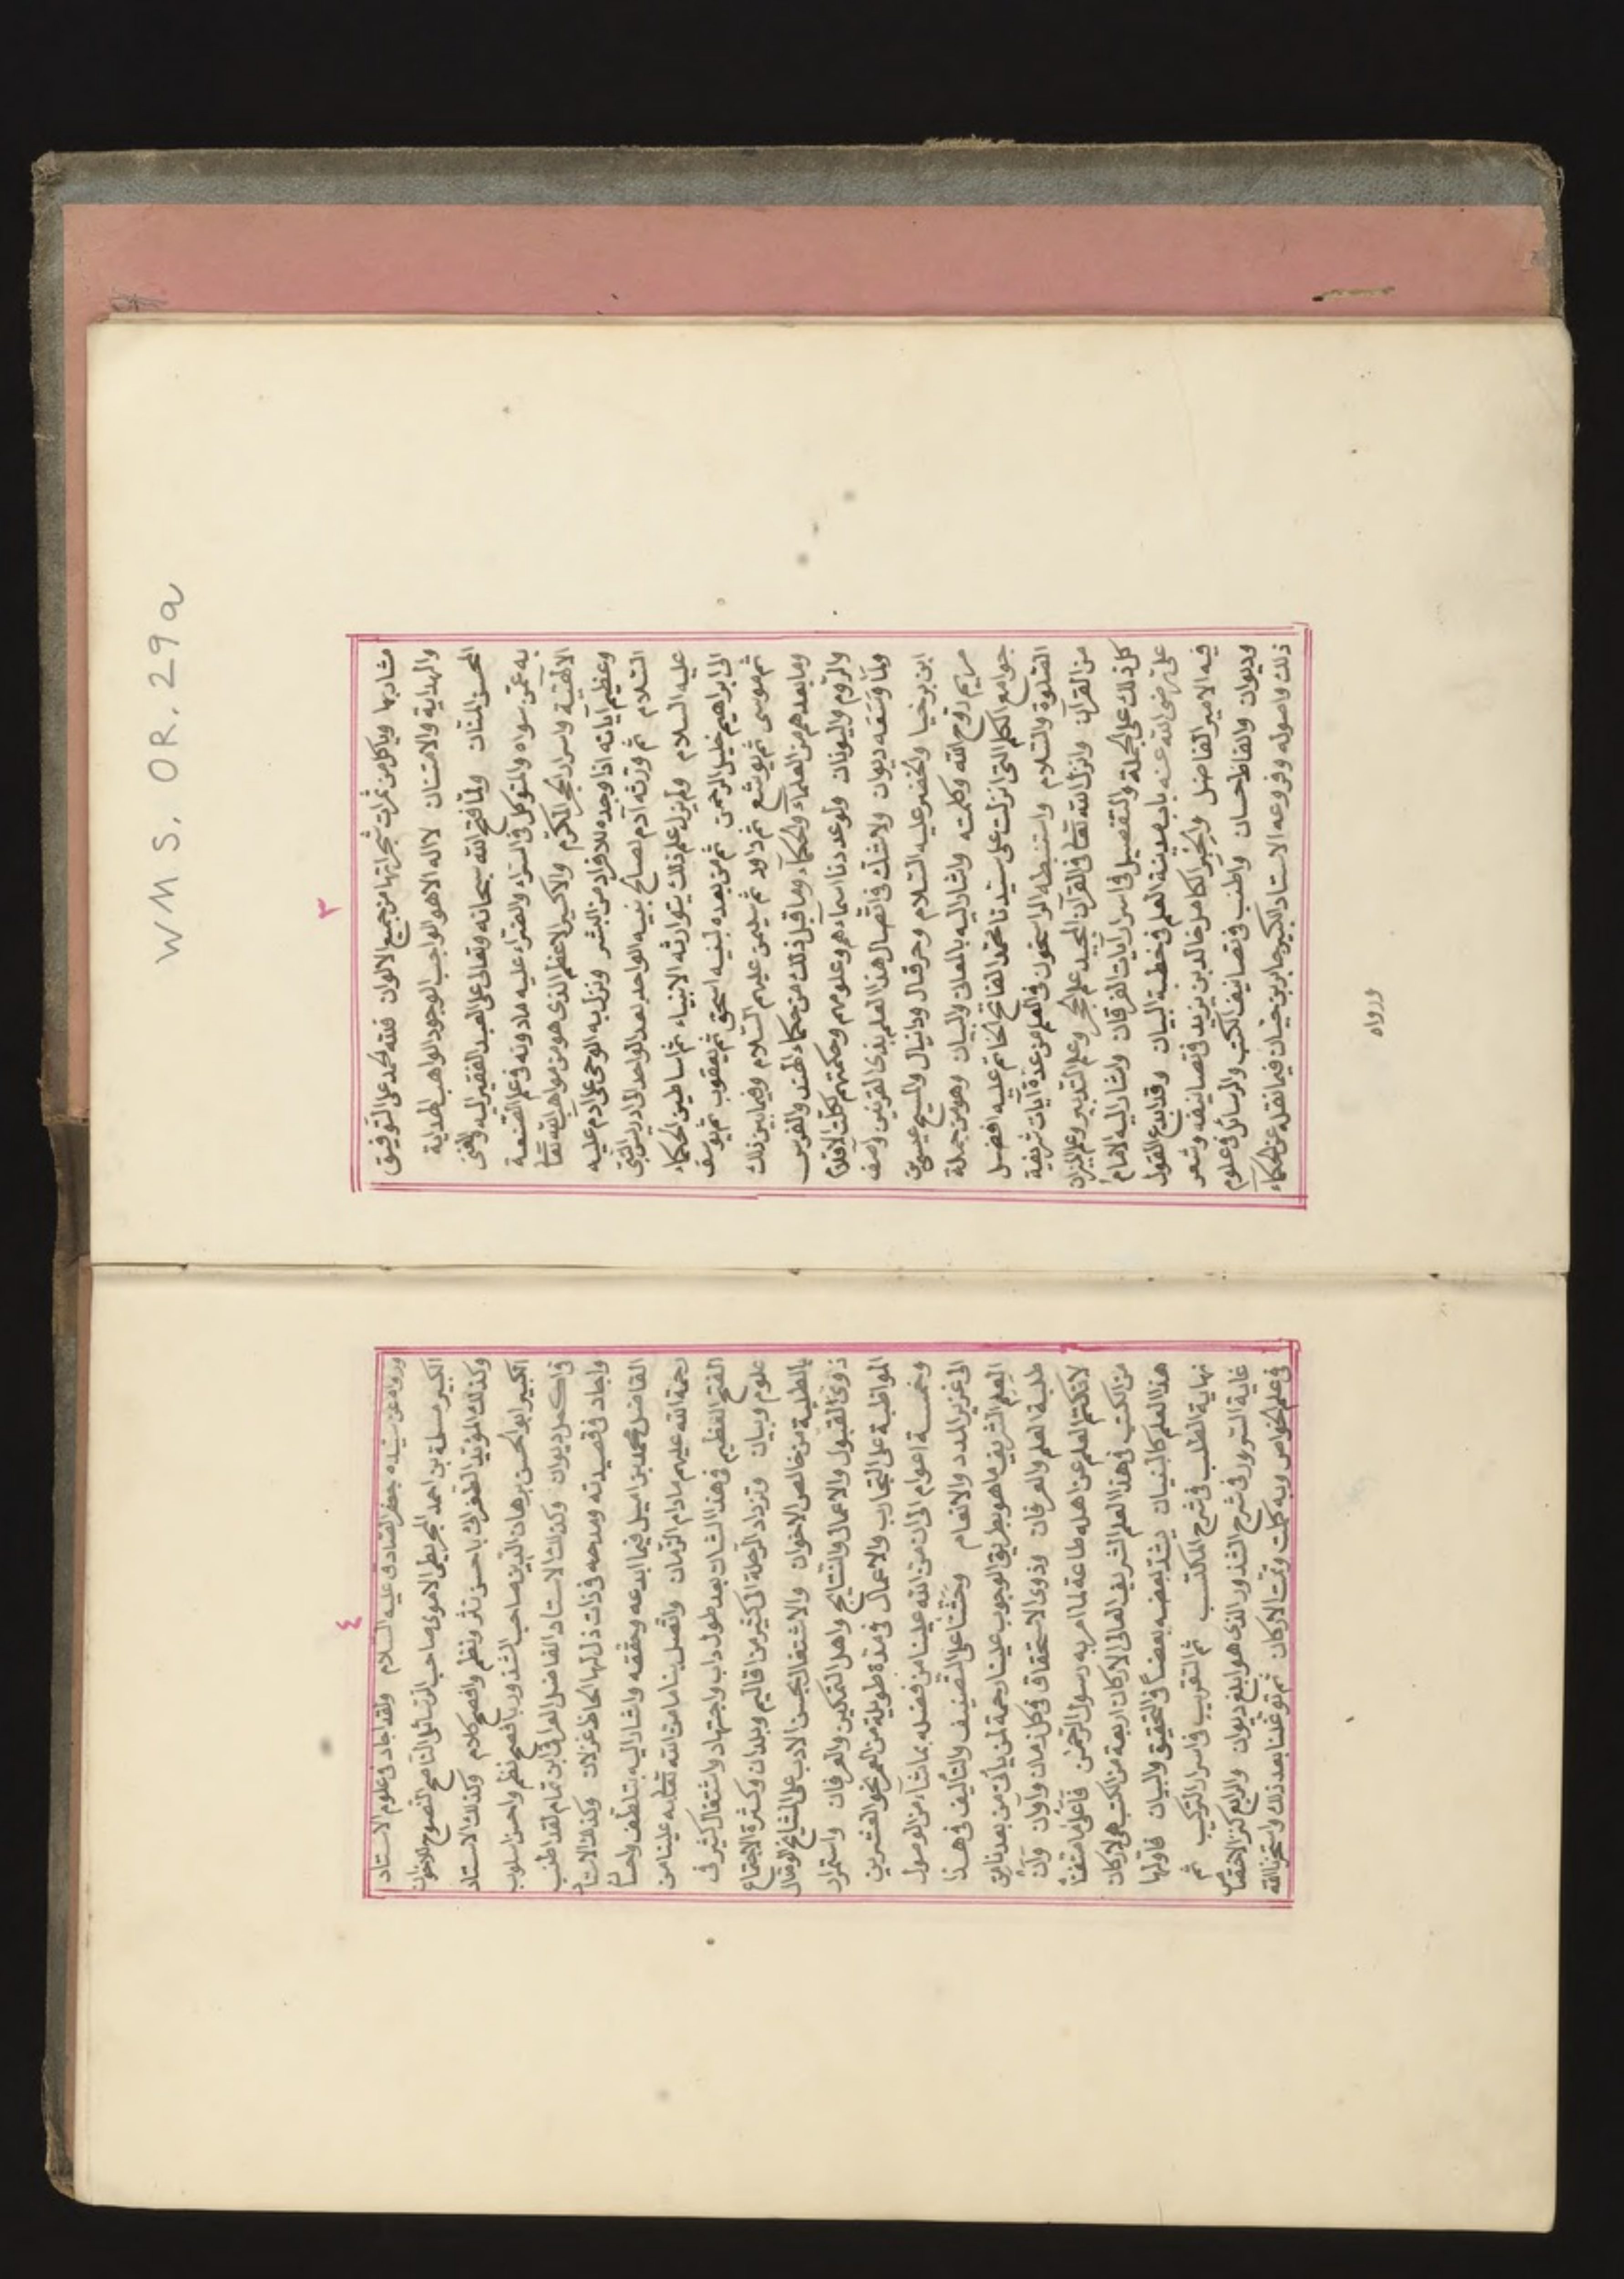 WMS. OR. 29a
٣
مشاربها وياكل من ثمرات شجراتها من جميع الالوان فلله الحمد على التوفيق
والهداية والامتنان لا اله الا هو الواجب الوجود الواهب الهداية
المحسن المنان ولما فتح الله سبحانه وتعالى على العبد الفقير اليه والغنى
به عمن سواه والمتوكل فى السراء والضراء عليه مادونه فى علم الصنعة
الالهية واسرار الحجر المكرم والاكسير الاعظم الذى هو من مواهب الله تعا
وعظيم آياته اذا وجده للافراد من البشر ونزل به الوحى على ادم عليه
السلام ثم ورثه آدم لصالح بنيه الواحد بعد الواحد الى ادريس النبى
عليه السلام ولم يزل علم ذلك يتوارثه الانبياء ثم اساطين الحكماء
الى ابراهيم خليل الرحمن ثم من بعده لبنيه اسحق ثم يعقوب ثم يوسف
ثم موسى ثم يوشع ثم داود ثم سليمن عليهم السلام وفيما بين ذلك
وما بعدهم من العلماء والحكماء وما قبل ذلك من حكماء الهند والفرس
والروم واليونان ولو عددنا اسماءهم وعلومهم وحكمتهم لكلت الاقلام
ولما وسعه ديوان ولا شك فى اتصال هذا العلم بذى القرنين وآصف
ابن برخيا والخضر عليه السلام وحزقال ودانيال والمسيح عيسى بن
مريم روح الله وكلمته واشار اليه بالمعانى والبيان وهو من جملة
جوامع الكلم التى انزلت على سيدنا محمد الفاتح الخاتم عليه افضل
الصلوة والسلام واستنبطه الراسخون فى العلم من عدة آيات شريفة
من القرآن وانزل الله تعا فى القرآن المجيد علم الحجر وعلم التدبير وعلم الميزان
كل ذلك على الجملة والتفصيل فى اسرار آيات الفرقان واشار اليه الامام
على رضى الله عنه باب مدينة العلم فى خطبة البيان وقد ابدع القول
فيه الامير الفاضل والخبر الكامل خالد بن يزيد فى تصانيفه وشعر
وديوان والفاظ حسان واطنب فى تصانيف الكتب والرسائل فى علوم
ذلك واصوله وفروعه الاستاد الكبير جابر بن حيان فيما نقله عن الحكماء
ورواه
٤
ورواه عن سيده جعفر الصادق عليه السلام ولقد اجاد فى علوم الاستاد
الكبير مسلمة بن احمد المجريطى الاموى صاحب الرسائل الناصح النصوح للاخوان
وكذلك المؤيد الطغرائى باحسن نثر ونظم وافصح كلام وكذلك الاستاد
الكبير ابو الحسن برهان الدين صاحب الشذور بافصح نظم واحسن اسلوب
فى اكمل ديوان وكذلك الاستاد الفاضل العراقى ابن تمام لقد اطنب
واجاد فى قصيدته ومدحه فى ذات ذل لها الحاظ غزلان وكذلك الاستاد
الفاضل محمد بن اميل فيما ابدعه وحققه واشار اليه بتلطف واحسان
رحمة الله عليهم مادام الزمان واتصل بنا ما من الله تعا به علينا من
الفتح العظيم فى هذا الشان بعد طول داب واجتهاد واشتغال كثير فى
علوم وبيان وتزداد الرحلة الى كثير من اقاليم وبلدان وكثرة الاجتماع
بالطلبة من خالص الاخوان والاشتغال بحسن الادب على المشايخ الوصال
ذوى القبول والاعمال والنتايج واهل التمكين والعرفان واستمرار
المواظبة على التجارب والاعمال فى مدة طويلة من العمر نحو العشرين
وخمسة اعوام الى ان من الله علينا من فضله بما شاء من الوصول
الى غزير المدد والانعام وحثنا على التصنيف والتأليف فى هذا
العلم الشريف ما هو بطريق الوجوب علينا رحمة لمن يأتى من بعدنا من
طلبة العلم والعرفان وذوى الاستحقاق فى كل زمان واوان وان
لا نكتم العلم عن اهله طاعة لما امر به رسول الرحمن
من الكتب فى هذا العلم الشريف العالى الاركان اربعة من الكتب هى لاركان
هذا العلم كالبنيان يشد بعضه بعضا فى التحقيق والبيان فاولها
نهاية الطلب فى شرح المكتسب ثم التقريب فى اسرار التركيب ثم
غاية السرور فى شرح الشذور الذى هو ابلغ ديوان والرابع كنز الاختصاص
فى علم الخواص وبه كملت وتمت الاركان ثم توغلنا بعد ذلك واستخرنا الله